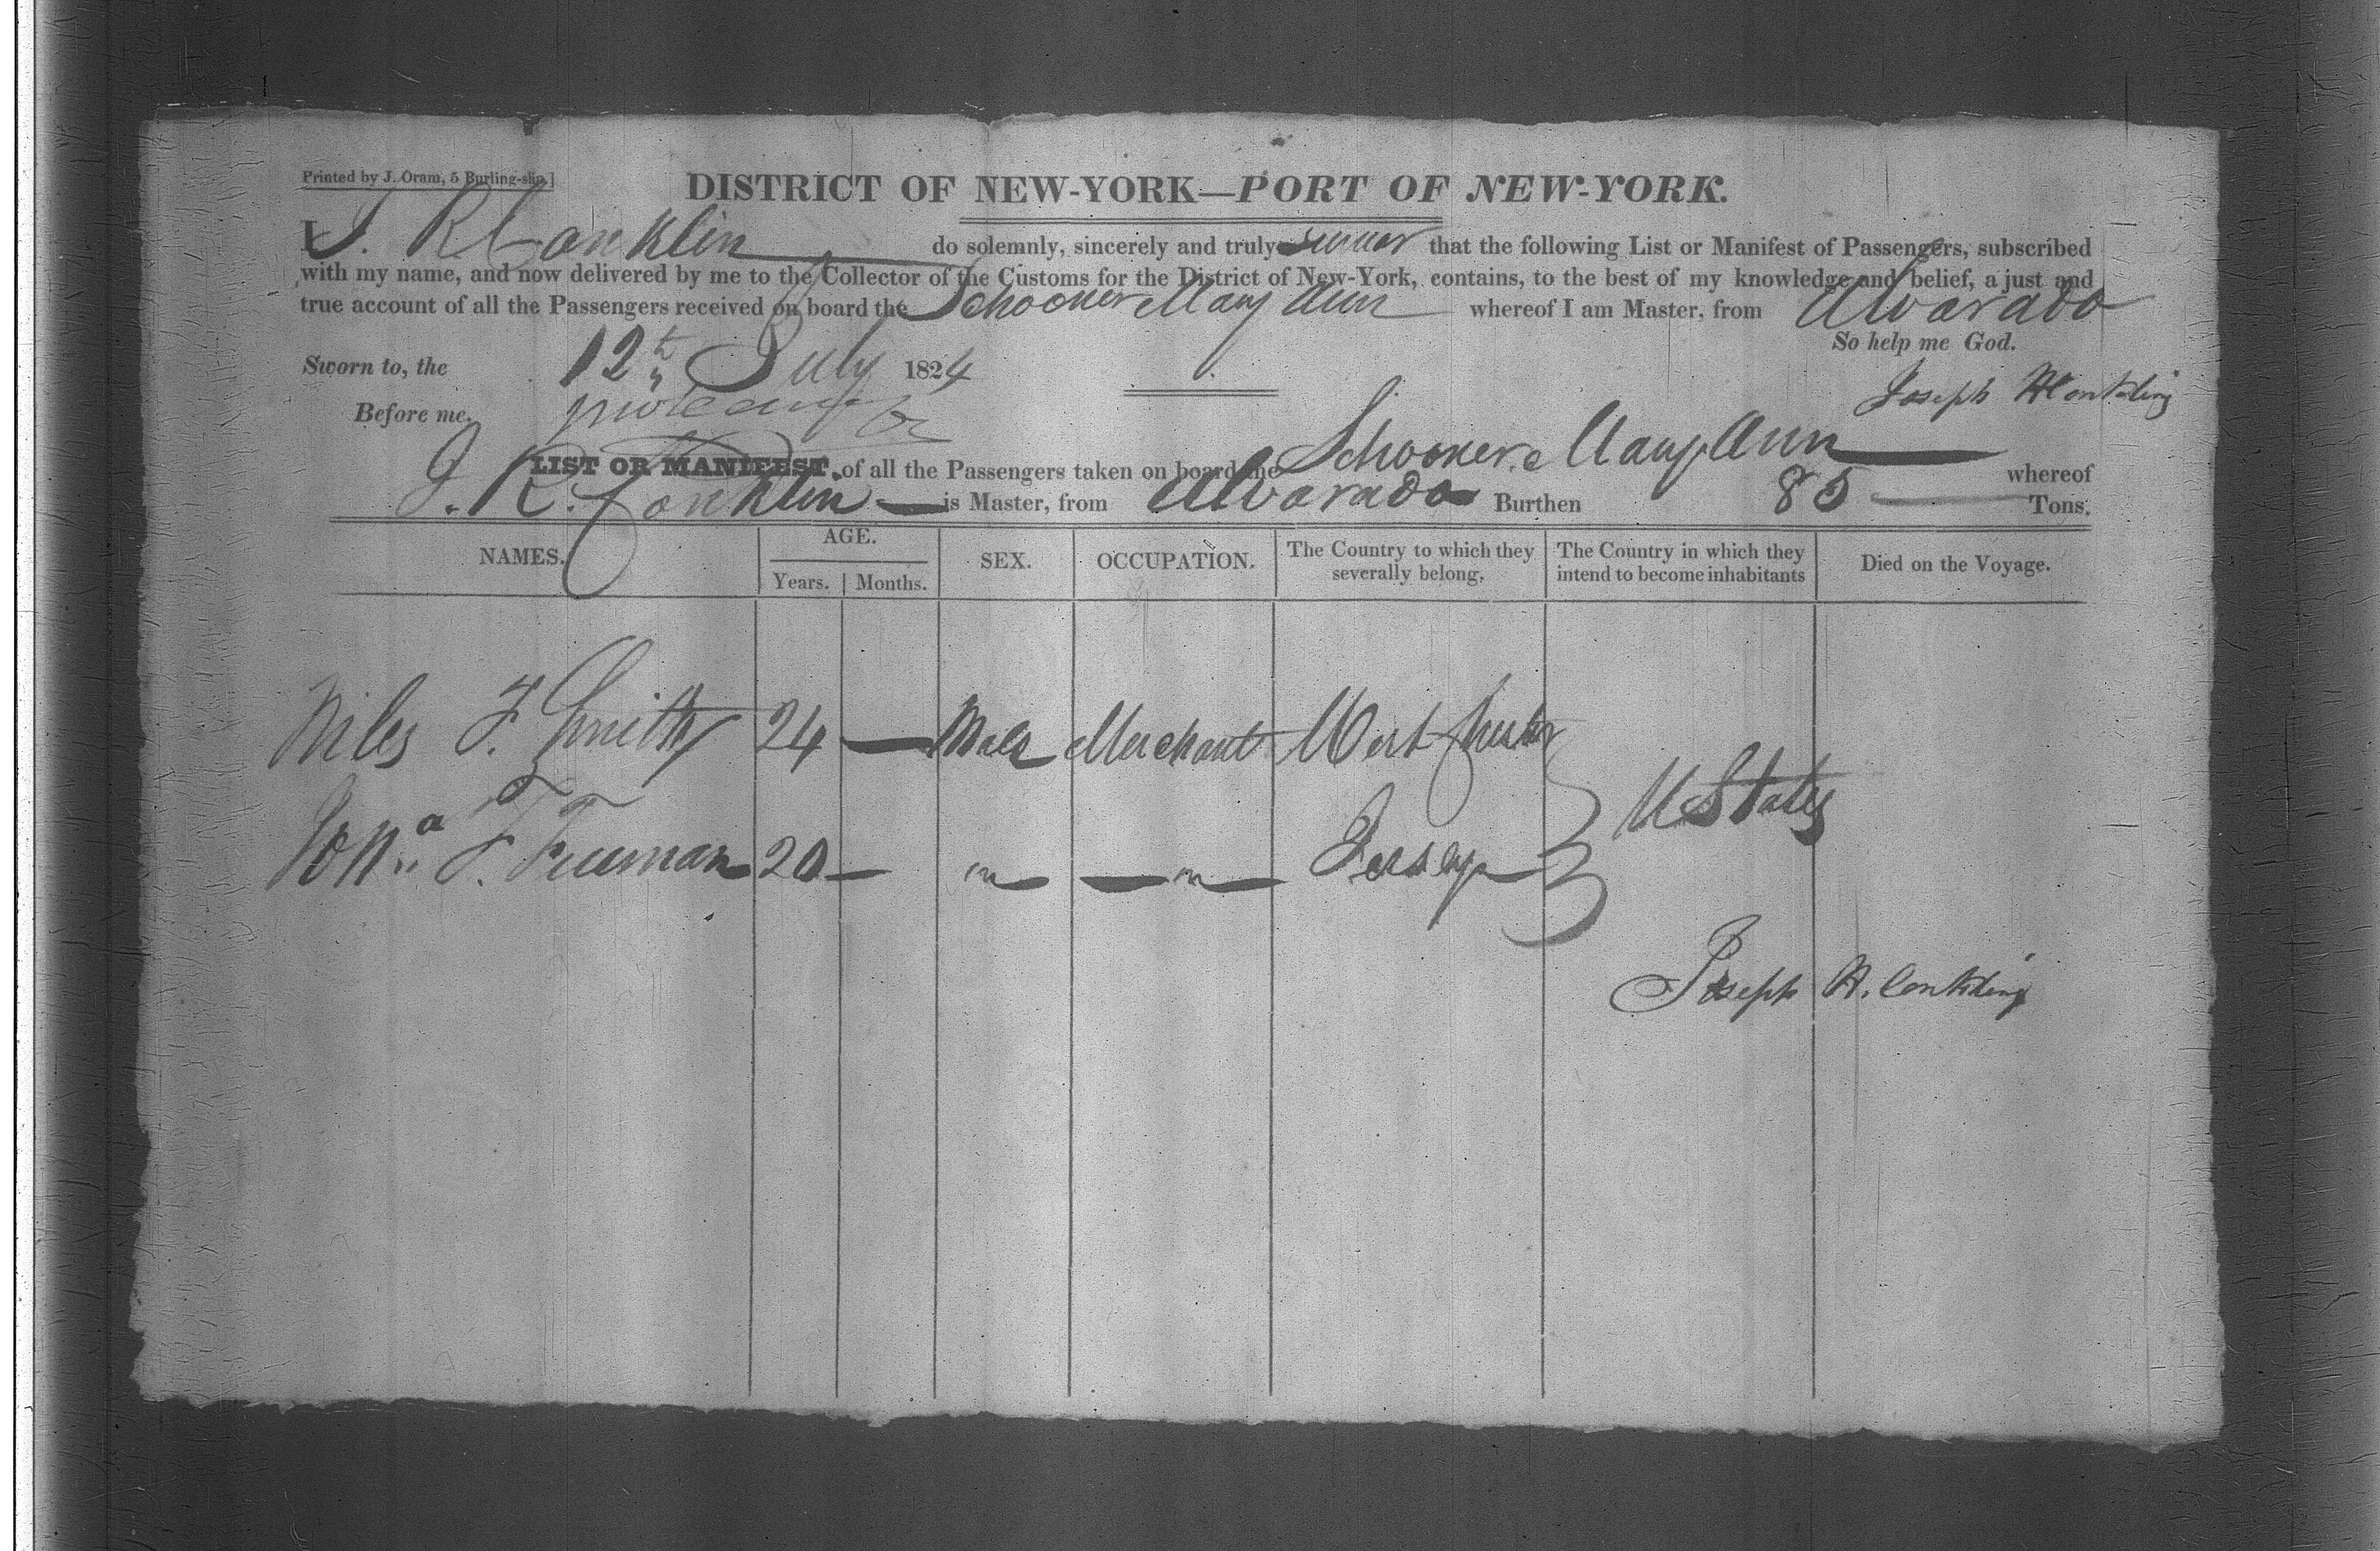 Printed by J. Oram, 5 Burling-slip.]
DISTRICT OF NEW-YORK—PORT OF NEW-YORK.
I J. R. Conklin do solemnly, sincerely and truly swear that the following List or Manifest of Passengers, subscribed
with my name, and now delivered by me to the Collector of the Customs for the District of New-York, contains, to the best of my knowledge and belief, a just and
true account of all the Passengers received on board the Schooner Mary Ann whereof I am Master, from Alvarado
So help me God.
Sworn to, the 12th July 1824
Joseph R Conkling
Before me,
LIST OR MANIFEST of all the Passengers taken on board the Schooner Mary Ann whereof
J. R. Conklin is Master, from Alvarado Burthen 85 Tons.
NAMES. AGE. SEX. OCCUPATION. The Country to which they severally belong. The Country in which they intend to become inhabitants Died on the Voyage.
Years. Months.
Niles F. Smith 24 — Male Merchant West Chester
U States
Jonna F. Freeman 20 — " — " — Jersey
Joseph R. Conkling